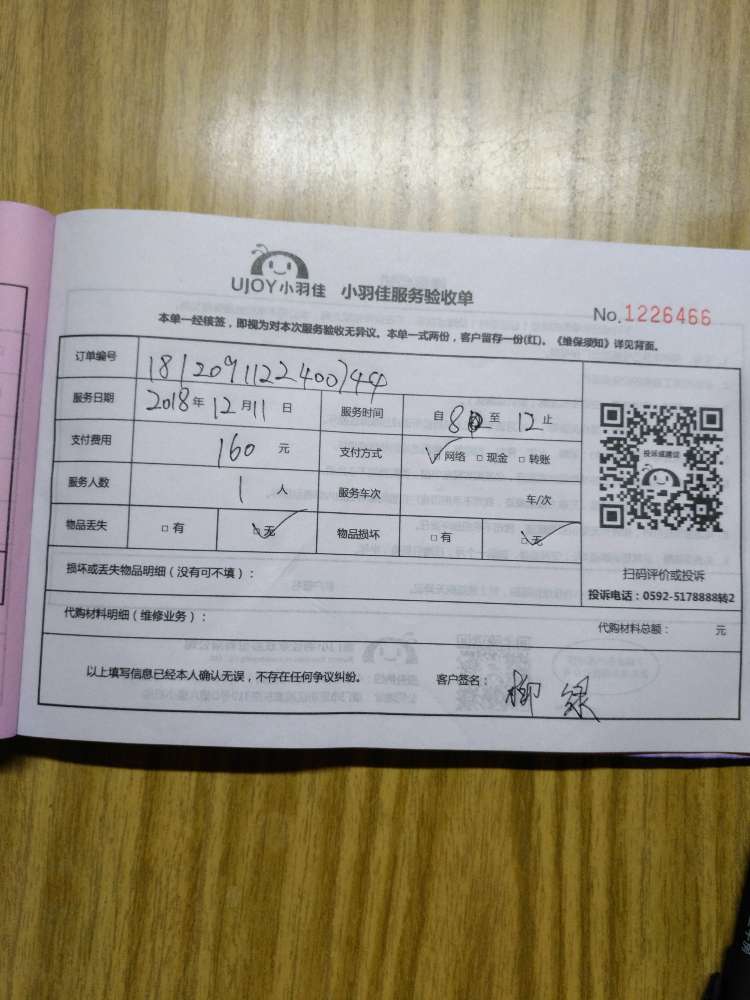 UJOY小羽佳 小羽佳服务验收单
No.1226466
本单一经核签，即视为对本次服务验收无异议。本单一式两份，客户留存一份(红)。《维保须知》详见背面。
订单编号 1812091122400744
服务日期 2018年12月11日 服务时间 自8至12止
支付费用 160元 支付方式 ☑网络 □现金 □转账
服务人数 1人 服务车次 车/次
物品丢失 □有 ☑无 物品损坏 □有 ☑无
投诉或建议
扫码评价或投诉
投诉电话：0592-5178888转2
损坏或丢失物品明细（没有可不填）：
代购材料明细（维修业务）： 代购材料总额： 元
以上填写信息已经本人确认无误，不存在任何争议纠纷。 客户签名：柳绿